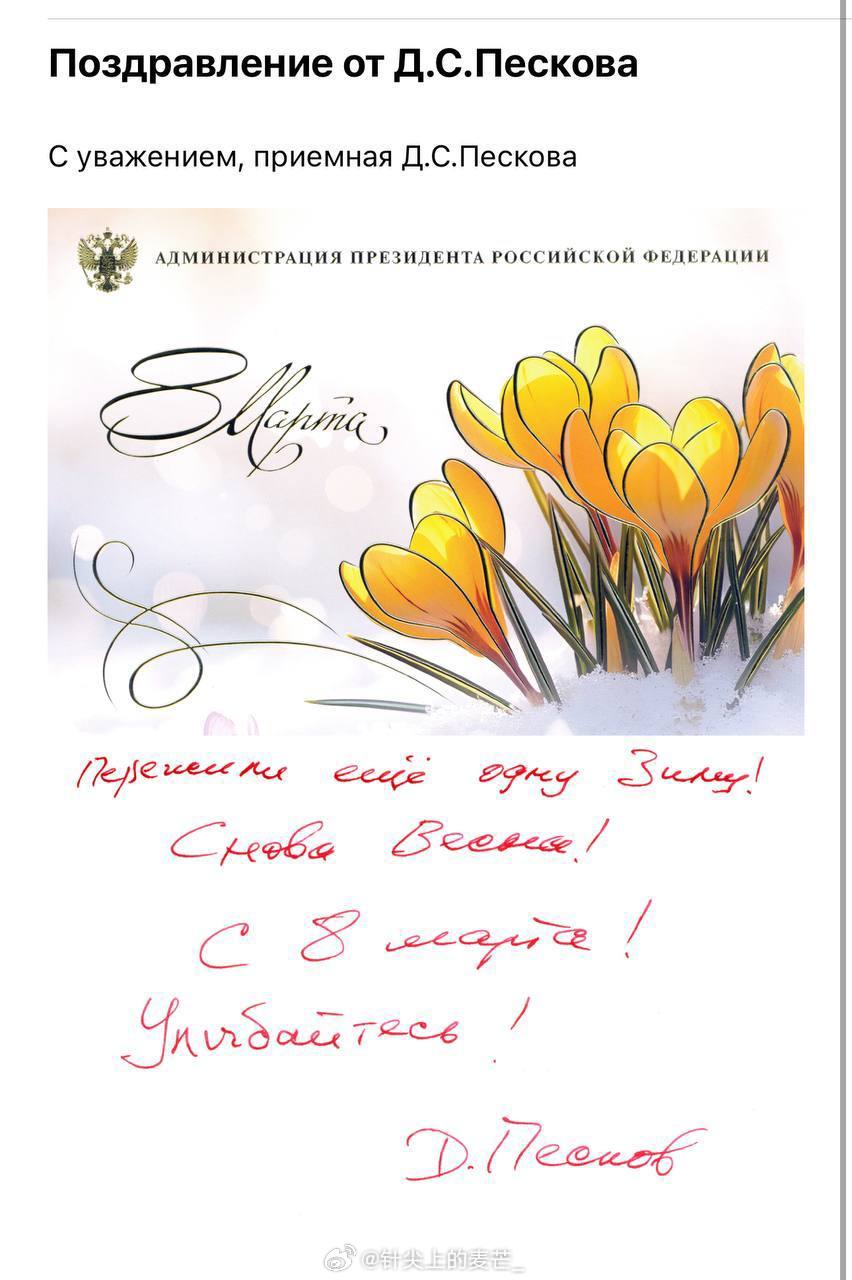 Поздравление от Д.С.Пескова
С уважением, приемная Д.С.Пескова
АДМИНИСТРАЦИЯ ПРЕЗИДЕНТА РОССИЙСКОЙ ФЕДЕРАЦИИ
8 Марта
Пережили ещё одну Зиму!
Снова Весна!
С 8 марта!
Улыбайтесь!
Д. Песков
@针尖上的麦芒_